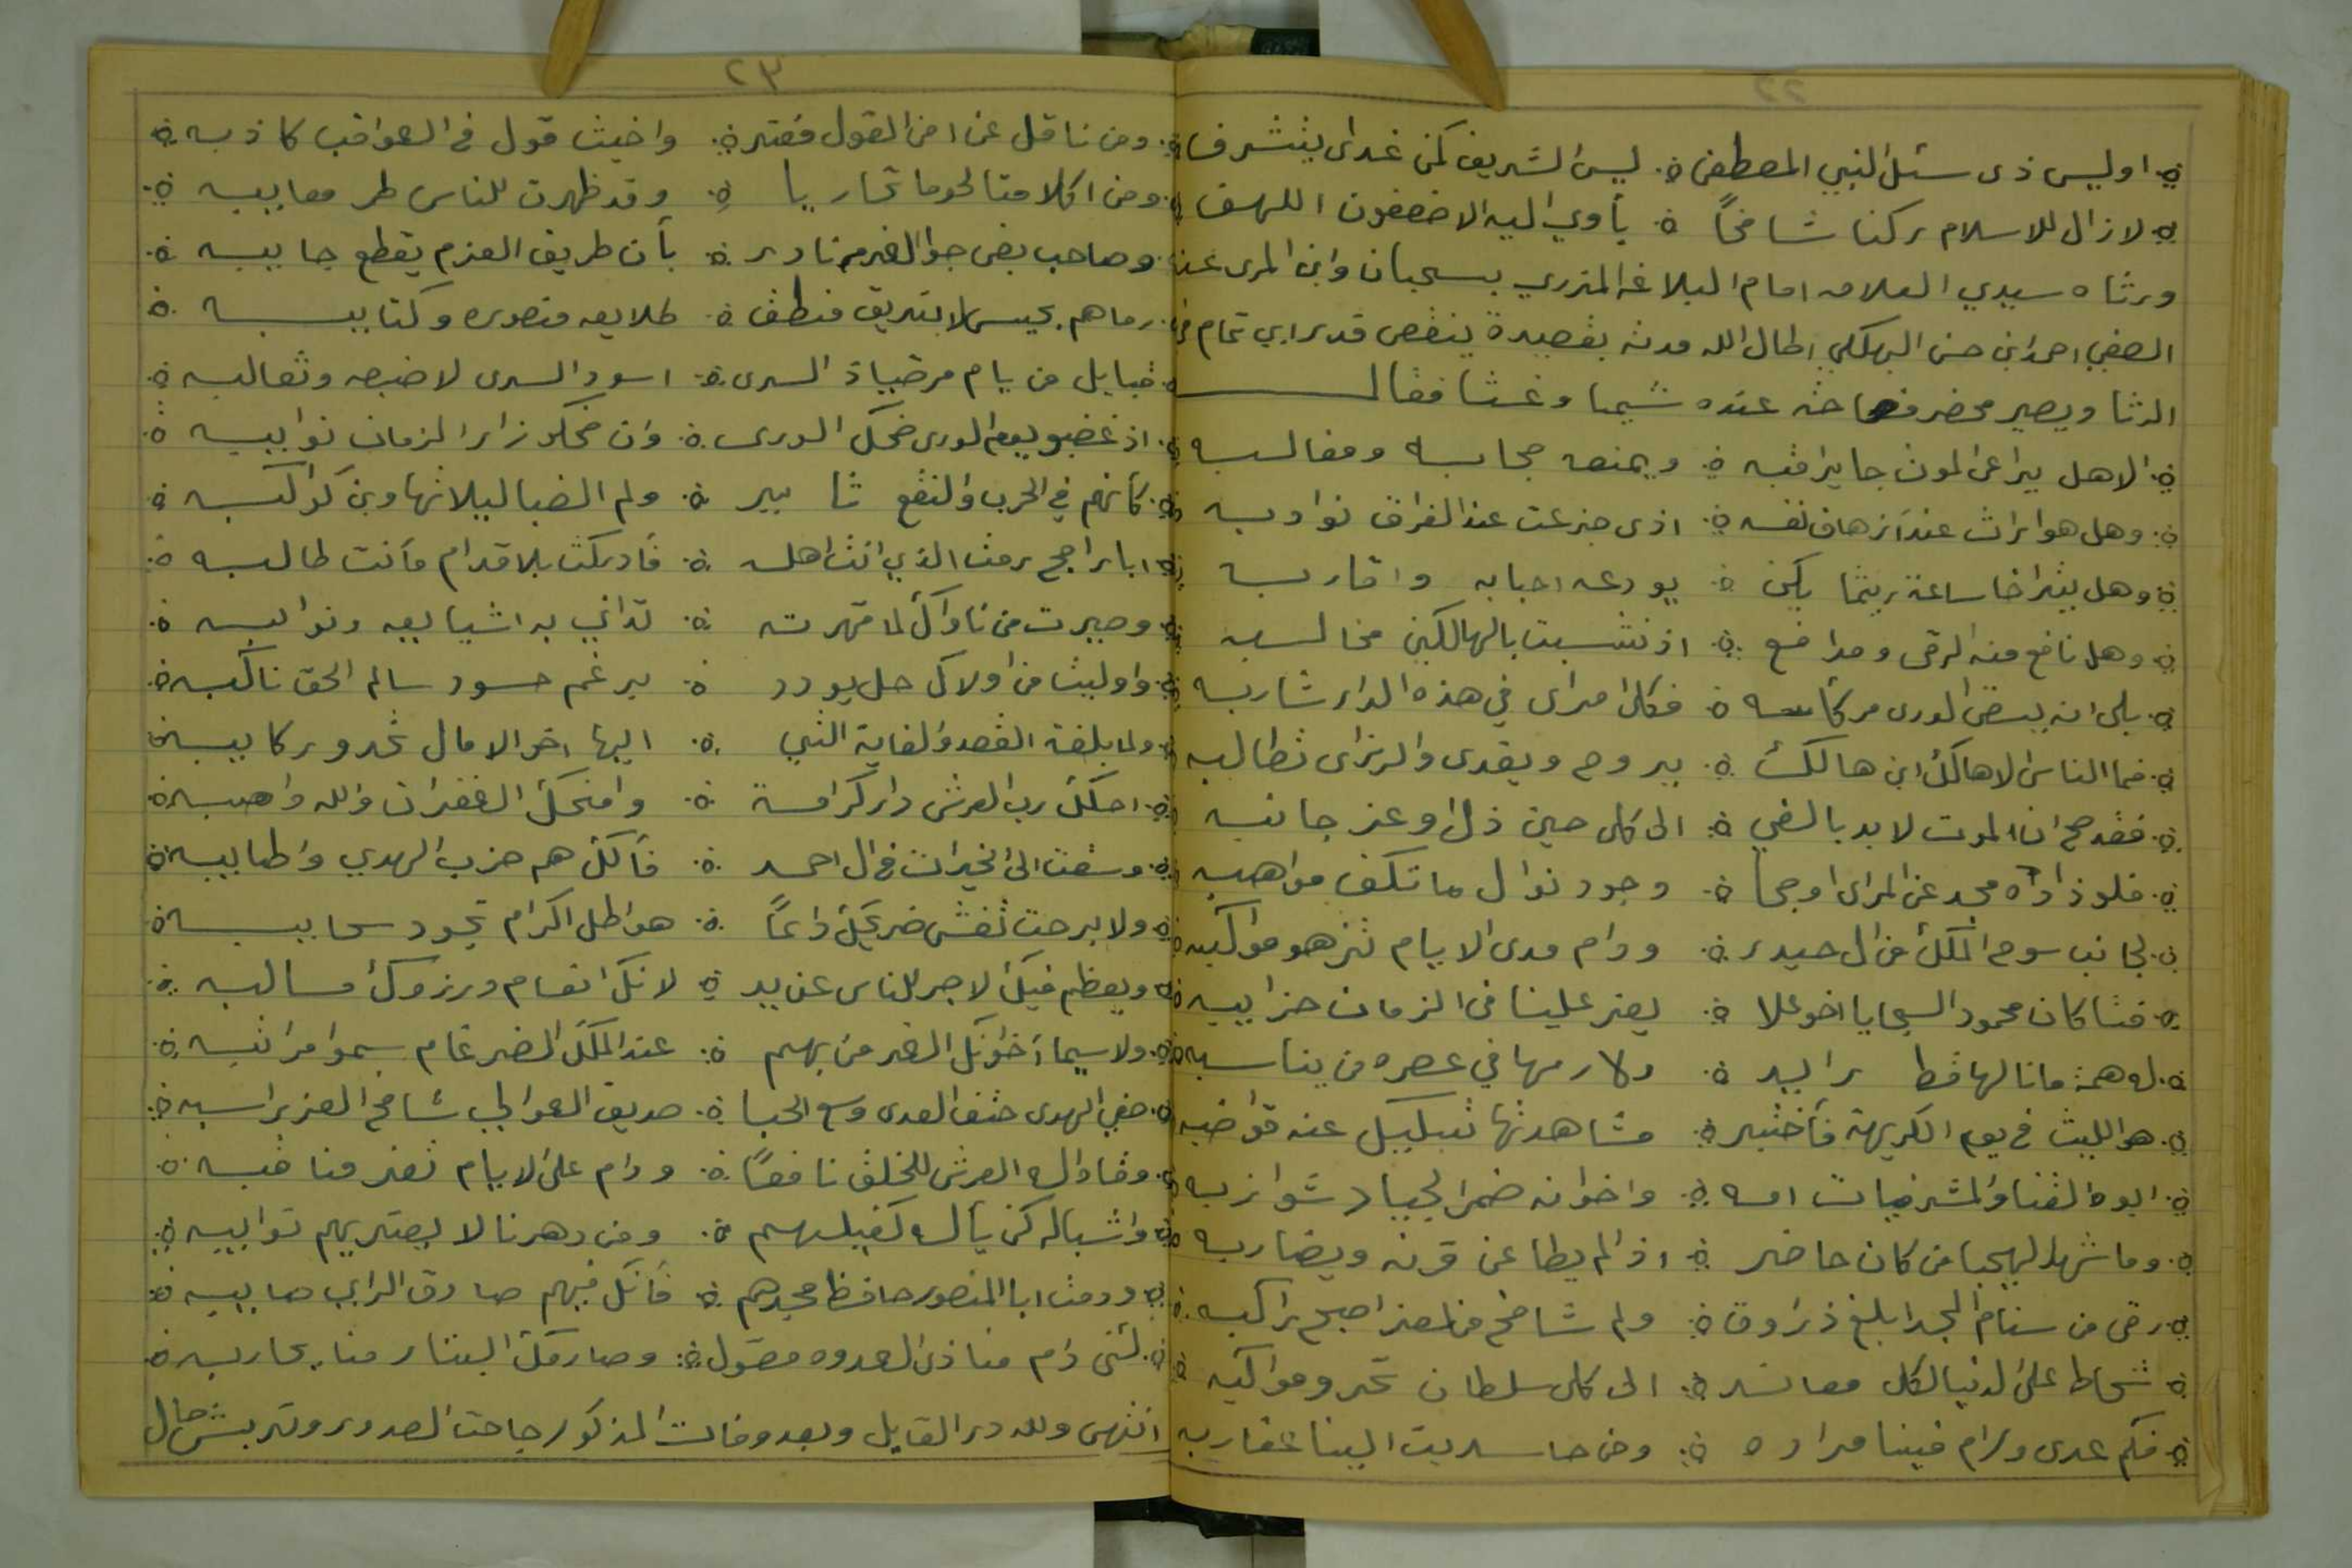 ٢٢
اوليس ذى سئل النبي المصطفى ليس الشريف كمن غدى يتشرف
لا زال للاسلام ركنا شامخاً يأوي اليه الاضعفون اللهف
ورثاه سيدي العلامه امام البلاغه المزري بسحبان وابن المرى
الصفي احمد ابن حسن البهكلي اطال الله مدته بقصيدة ينقص قدر ابي تمام
الرثا ويصير محضر فصاحته عنده شيما وغثا فقال
الاهل يراعي الموت جا يراقبه ويمنعه حجابه ومغالبه
وهل هو اراث عند ازهاق نفسه اذى جزعت عند الفراق نوادبه
وهل يثر اخا ساعة ريثما يكن يودعه احبابه واقاربه
وهل نافع منه الرقى ومدافع اذ نشبت بالهالكين مخالبه
بلى انه يسقى الورى مر كأسه فكل امرى في هذه الدار شاربه
فما الناس الا هالك ابن هالك يروح ويغدى والرزاى تطالبه
فقد صح ان الموت لابد بالفي الى كل حين ذل او عز جانبه
فلوذ اداه مجد عن المرى اوحجا وجود نوال ما تكف مواهبه
لجانب سوح الملك من ال حيدر ودام مدى الايام تزهو مواكبه
فتا كان محمود السجايا اخو علا يعز علينا في الزمان ضرايبه
له همة ما نالها قط رايد ولا رمها في عصره من يناسبه
هو الليث في يوم الكريهة فأختبر مشاهدتها تبليك عنه قواضبه
ابوه القنا والمشرفيات امه واخوانه ضمر الجياد شوازبه
وما شهد الهيجا من كان حاضر اذ لم يطاعن قرنه ويضاربه
رقى من سنام المجد ابلغ ذروة ولم شامخ من العز اصبح راكبه
شحاط على الدنيا لكل معاند الى كل سلطان تحدو مواكبه
فكم عدى ورام فينا مراده ومن حاسد دبت الينا عقاربه
٢٣
ومن ناقل عن امن القول مفتر واخيث قول في العواقب كاذبه
ومن اكلا منا لحوما تحاربا وقد ظهرت للناس طر معايبه
وصاحب بغى جوا الغرم نادر بأن طريق العزم يقطع جايبه
رماهم بجيس لا بتريق منطق طلايعه منصوره وكتايبه
قبايل من يام مرضياة السرى اسود السرى لا ضبعه وثعالبه
اذ غضبو يوم الورى ضحك الورى وان ضحكو زار الزمان نوايبه
كأنهم في الحرب والنقع ثاير ولم الضبا ليلا تهاوين كواكبه
ابا راجح رمت الذي انت اهله فأدركت بلا قدام مأنت طالبه
وصيرت من ناواك لما قهرته تداني به اشيا يعه ونوايبه
واوليت من اولاك حل يودد برغم حسود سالم الحق ناكبه
ولما بلغة القصد والغاية التي اليها اخو الامال تحدو ركايبه
احلك رب العرش دار كرامة وامنحك الغفران والله واهبه
وسقت الى الخيرات في ال احمد فألك هم حزب الهدي واطايبه
ولا برحت تغشى ضريحك داعاً هواطل اكرام تجود سحايبه
ويعظم فيك الاجر للناس عن يد لانك انعام ورزوك مسالبه
ولا سيما اخوانك الغر من بهم عند الملك الضرغام يسموا مراتبه
صفي الهدى حتف العدى وسع الحبا صديق العوالي شامخ العز راسبه
وفا دال العرش للخلق نافعاً ودام على الايام تغر مناقبه
واشباله كن يأله كفيلهم ومن دهرنا لا يعتريهم توابيه
ودمت ابا المنصور حافظ مجدهم فأنك فيهم صادق الراي صايبه
لئن دام منا ذى العدوه مقول وصارمك البتار منا يحاربه
انتهى ولله در القايل وبعد وفات المذكور جاحت الصدور وتربش حال